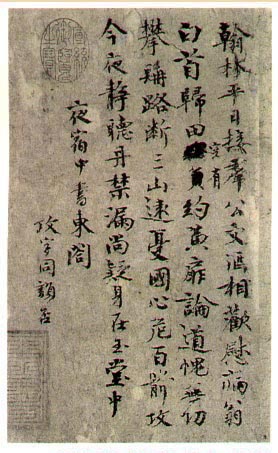 翰林平日接羣公文酒相歡慰病翁
白首歸田空有約黃扉論道愧無功
攀髯路斷三山遠憂國心危百箭攻
今夜靜聽丹禁漏尚疑身在玉堂中
夜宿中書東閣
攻字同韻否